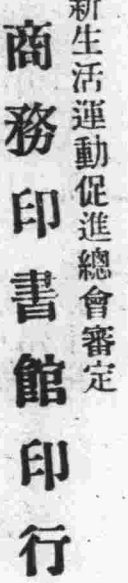 新生活運動促進總會審定
商務印書館印行